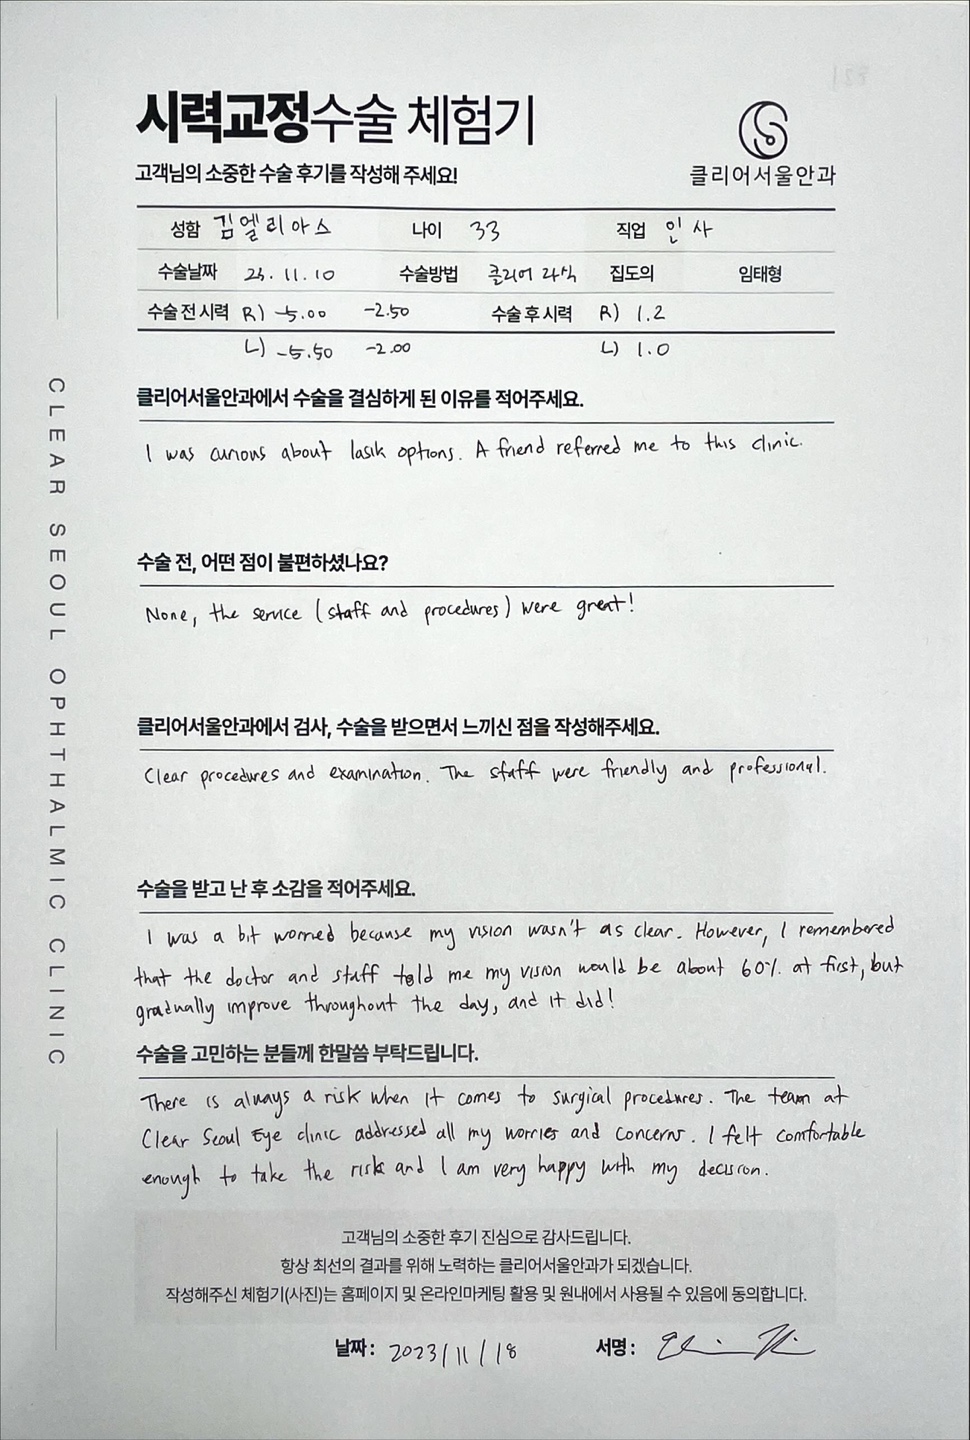 시력교정수술 체험기
고객님의 소중한 수술 후기를 작성해 주세요!
클리어서울안과
성함 김엘리아스 나이 33 직업 인사
수술날짜 23. 11. 10 수술방법 클리어 라식 집도의 임태형
수술 전 시력 R) -5.00 -2.50 수술 후 시력 R) 1.2
L) -5.50 -2.00 L) 1.0
클리어서울안과에서 수술을 결심하게 된 이유를 적어주세요.
I was curious about lasik options. A friend referred me to this clinic.
수술 전, 어떤 점이 불편하셨나요?
None, the service (staff and procedures) were great!
클리어서울안과에서 검사, 수술을 받으면서 느끼신 점을 작성해주세요.
Clear procedures and examination. The staff were friendly and professional.
수술을 받고 난 후 소감을 적어주세요.
I was a bit worried because my vision wasn't as clear. However, I remembered
that the doctor and staff told me my vision would be about 60% at first, but
gradually improve throughout the day, and it did!
수술을 고민하는 분들께 한말씀 부탁드립니다.
There is always a risk when it comes to surgical procedures. The team at
Clear Seoul Eye clinic addressed all my worries and concerns. I felt comfortable
enough to take the risk and I am very happy with my decision.
고객님의 소중한 후기 진심으로 감사드립니다.
항상 최선의 결과를 위해 노력하는 클리어서울안과가 되겠습니다.
작성해주신 체험기(사진)는 홈페이지 및 온라인마케팅 활용 및 원내에서 사용될 수 있음에 동의합니다.
날짜 : 2023/11/18 서명 :
CLEAR SEOUL OPHTHALMIC CLINIC